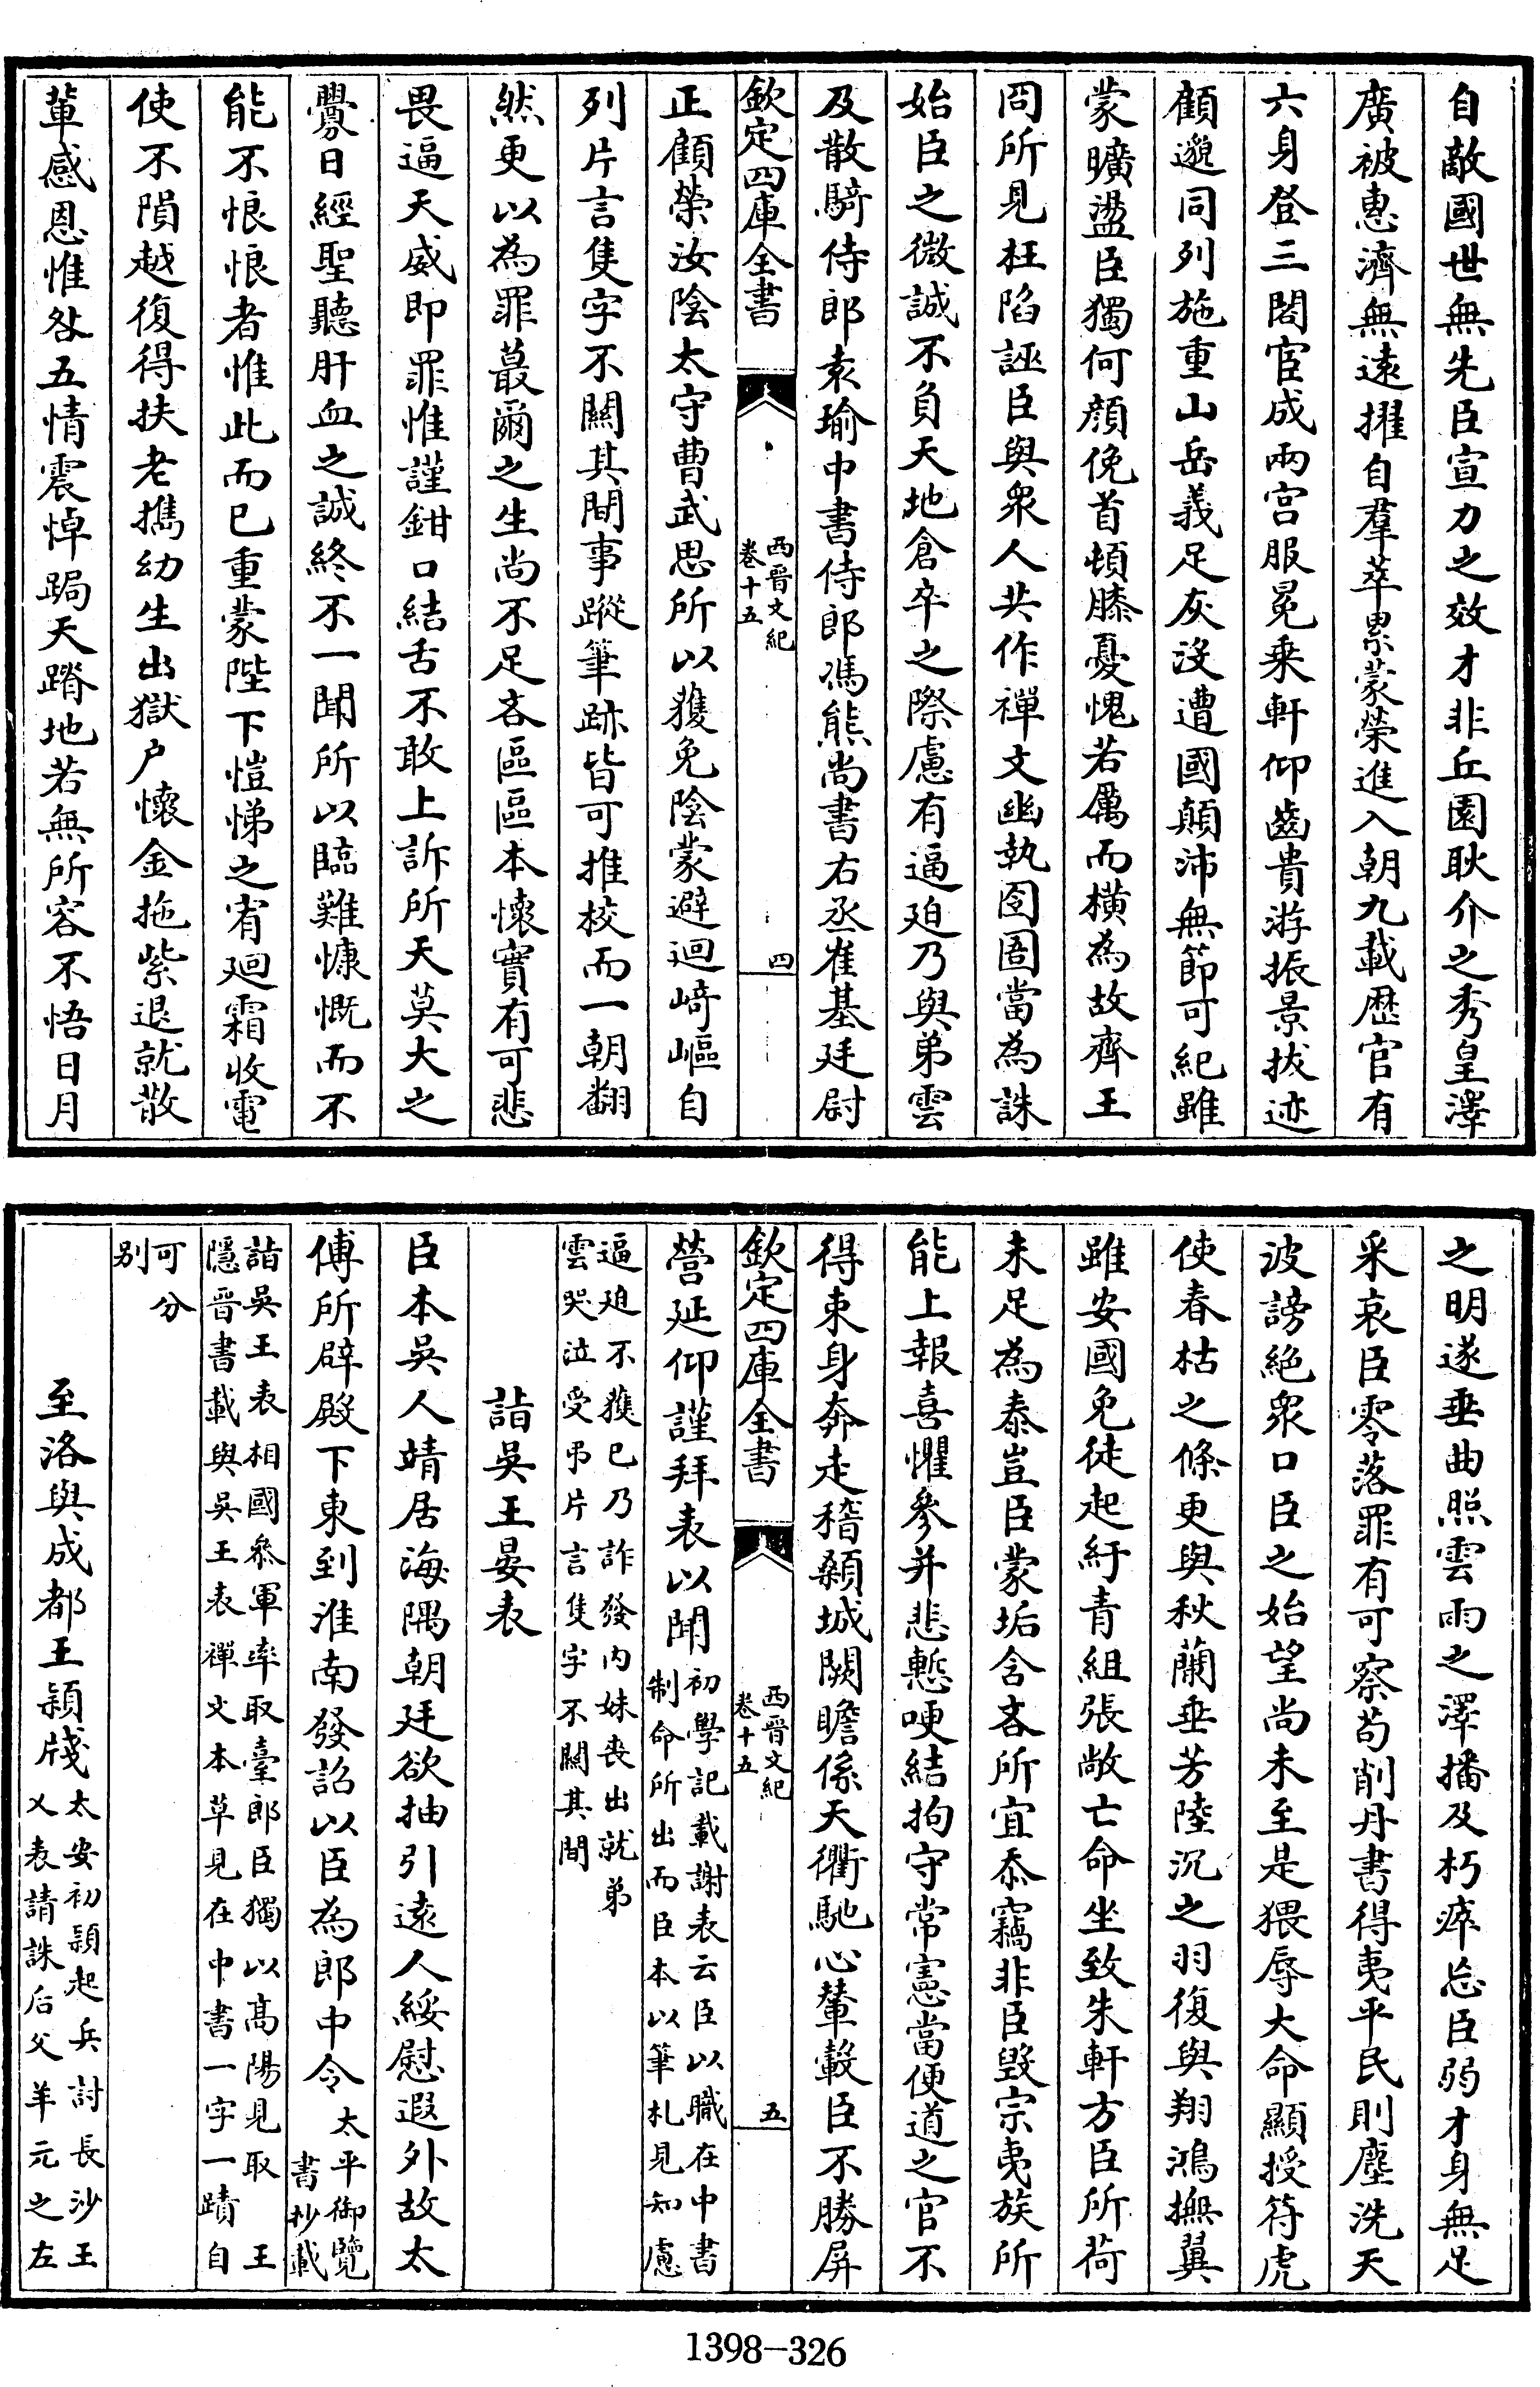 自敵國世無先臣宣力之效才非丘園耿介之秀皇澤
廣被惠濟無遠擢自羣萃累蒙榮進入朝九載歴官有
六身登三閣宦成兩宫服冕乗軒仰齒貴游振景拔迹
顧邈同列施重山岳義足灰沒遭國顛沛無節可紀雖
蒙曠盪臣獨何顔俛首頓膝憂愧若厲而横為故齊王
冏所見枉陷誣臣與衆人共作禪文幽執囹圄當為誅
始臣之微誠不負天地倉卒之際慮有逼廹乃與弟雲
及散騎侍郎袁瑜中書侍郎馮熊尚書右丞崔基廷尉
欽定四庫全書
西晉文紀
卷十五
四
正顧榮汝陰太守曹武思所以獲免陰蒙避迴﨑嶇自
列片言隻字不關其間事蹤筆跡皆可推校而一朝翻
然更以為罪蕞爾之生尚不足吝區區本懷實有可悲
畏逼天威即罪惟謹鉗口結舌不敢上訴所天莫大之
釁日經聖聽肝血之誠終不一聞所以臨難慷慨而不
能不恨恨者惟此而已重蒙陛下愷悌之宥廻霜收電
使不隕越復得扶老攜幼生出獄户懷金拖紫退就散
輩感恩惟咎五情震悼跼天蹐地若無所容不悟日月
之明遂垂曲照雲雨之澤播及朽瘁忘臣弱才身無足
采哀臣零落罪有可察苟削丹書得夷平民則塵洗天
波謗絶衆口臣之始望尚未至是猥辱大命顯授符虎
使春枯之條更與秋蘭垂芳陸沉之羽復與翔鴻撫翼
雖安國免徒起紆青組張敞亡命坐致朱軒方臣所荷
未足為泰豈臣蒙垢含吝所宜忝竊非臣毁宗夷族所
能上報喜懼參并悲慙哽結拘守常憲當便道之官不
得束身奔走稽顙城闕瞻係天衢馳心輦轂臣不勝屏
欽定四庫全書
西晉文紀
卷十五
五
營延仰謹拜表以聞初學記載謝表云臣以職在中書
制命所出而臣本以筆札見知慮
逼廹不獲已乃詐發内妹喪出就弟
雲哭泣受弔片言隻字不關其間
詣吳王晏表
臣本吳人靖居海隅朝廷欲抽引遠人綏慰遐外故太
傅所辟殿下東到淮南發詔以臣為郎中令太平御覽
書抄載
詣吳王表相國叅軍率取臺郎臣獨以髙陽見取 王
隱晉書載與吳王表禪文本草見在中書一字一蹟自
可分
别
至洛與成都王穎牋太安初頴起兵討長沙王
乂表請誅后父羊元之左
1398-326